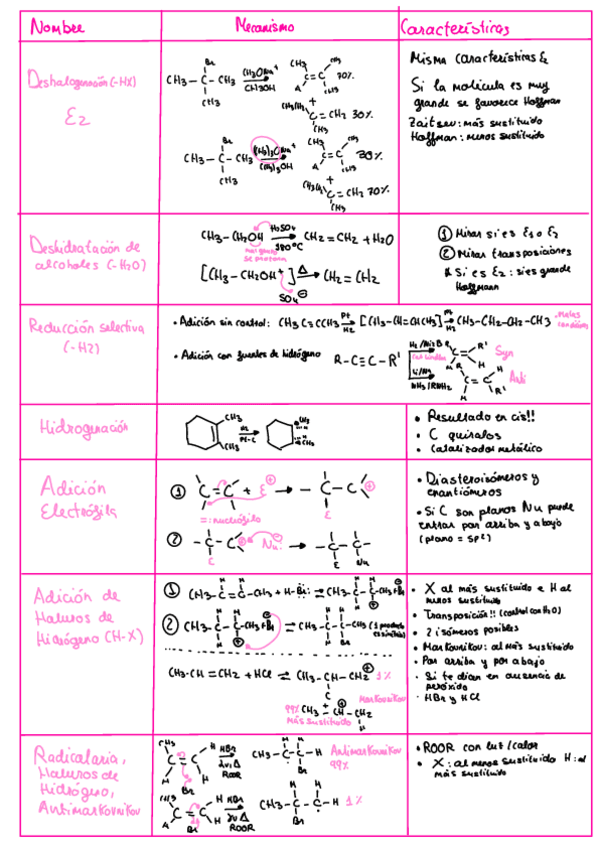 Nombre
Mecanismo
Características
Deshalogenación (-HX)
E2
CH3-C-CH3
Br
CH3
CH3ONa
CH3OH
70%
+
C=CH2 30%
CH3-C-CH3
Br
CH3
(CH3)3ONa
(CH3)3OH
30%
+
C=CH2 70%
Misma características E2
Si la molécula es muy
grande se favorece Hoffman
Zaitsev: más sustituido
Hoffman: menos sustituido
Deshidratación de
alcoholes (-H2O)
CH3-CH2OH H2SO4 180ºC CH2=CH2 + H2O
[CH3-CH2OH+] Δ CH2=CH2
SO4⊖
① Mirar si es E1 o E2
② Mirar transposiciones
Si es E2: si es grande
Hoffmann
Reducción selectiva
(-H2)
• Adición sin control: CH3C≡CCH3 Pt H2 [CH3-CH=CHCH3] Pt H2 CH3-CH2-CH2-CH3
• Adición con fuentes de hidrógeno
R-C≡C-R'
Syn
Li/NH3
NH3/RNH2
Anti
Hidrogenación
CH3
CH3
Pt-C
• Resultado en cis!!
• C quirales
• Catalizador metálico
Adición
Electrófila
① C=C + E⊕ → -C-C⊕
E
=: nucleófilo
② -C-C⊕ Nu: → -C-C-
E
Nu
• Diasteroisómeros y
enantiómeros
• Si C son planos Nu puede
entrar por arriba y abajo
(plano = sp2)
Adición de
Haluros de
Hidrógeno (H-X)
① CH3-C=C-CH3 + H-Br: ⇌ CH3-C-C-CH3 + Br
② CH3-C-C-CH3 + Br ⇌ CH3-C-C-CH3 (1 producto
es simétrico)
CH3-CH=CH2 + HCl ⇌ CH3-CH-CH2⊕ 1%
99% CH3-CH-CH2
Más sustituido
Markovnikov
• X al más sustituido e H al
menos sustituido
• Transposición!! (control con H2O)
• 2 isómeros posibles
• Markovnikov: al más sustituido
• Por arriba y por abajo
• Si te dicen en ausencia de
peróxido
• HBr y HCl
Radicalaria,
Haluros de
Hidrógeno,
Antimarkovnikov
CH3
C=C
H
HBr
ROOR
CH3-C-C-H
Br
Antimarkovnikov
99%
CH3
C=C
H
HBr
ROOR
CH3-C-C-H 1%
Br
• ROOR con luz/calor
• X: al menos sustituido H: al
más sustituido